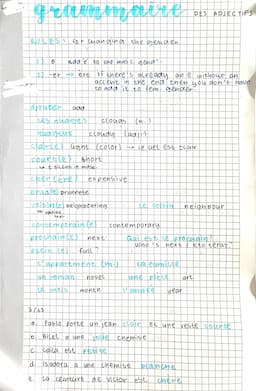 grammaire DES ADJECTIFS
RULES: for changing the gender
1) e add e to the masc gend.
2) -er → ère If there's already an e without an
accent in the end then you don't have
to add it to fem. gender
ajouter add
les nuages clouds (n.)
nuageux cloudy (adj.)
clair(e) light (color) → le ciel est clair
court(e) short
cher (ère) expensive
voisin(e) neighbouring le voisin neighbour
contemporain(e) contemporary
prochain(e) next Qui est le prochain?
plein (e) full who's next / кто
l'appartment (m.) la famille
un roman novel art
le mois month l'année year
a. Pablo porte un jean clair et une veste courte
b. Bilel a une jolie chemise
c. est petite
d. Isadora a une chemise blanche
e. La ceinture de Victor est chère